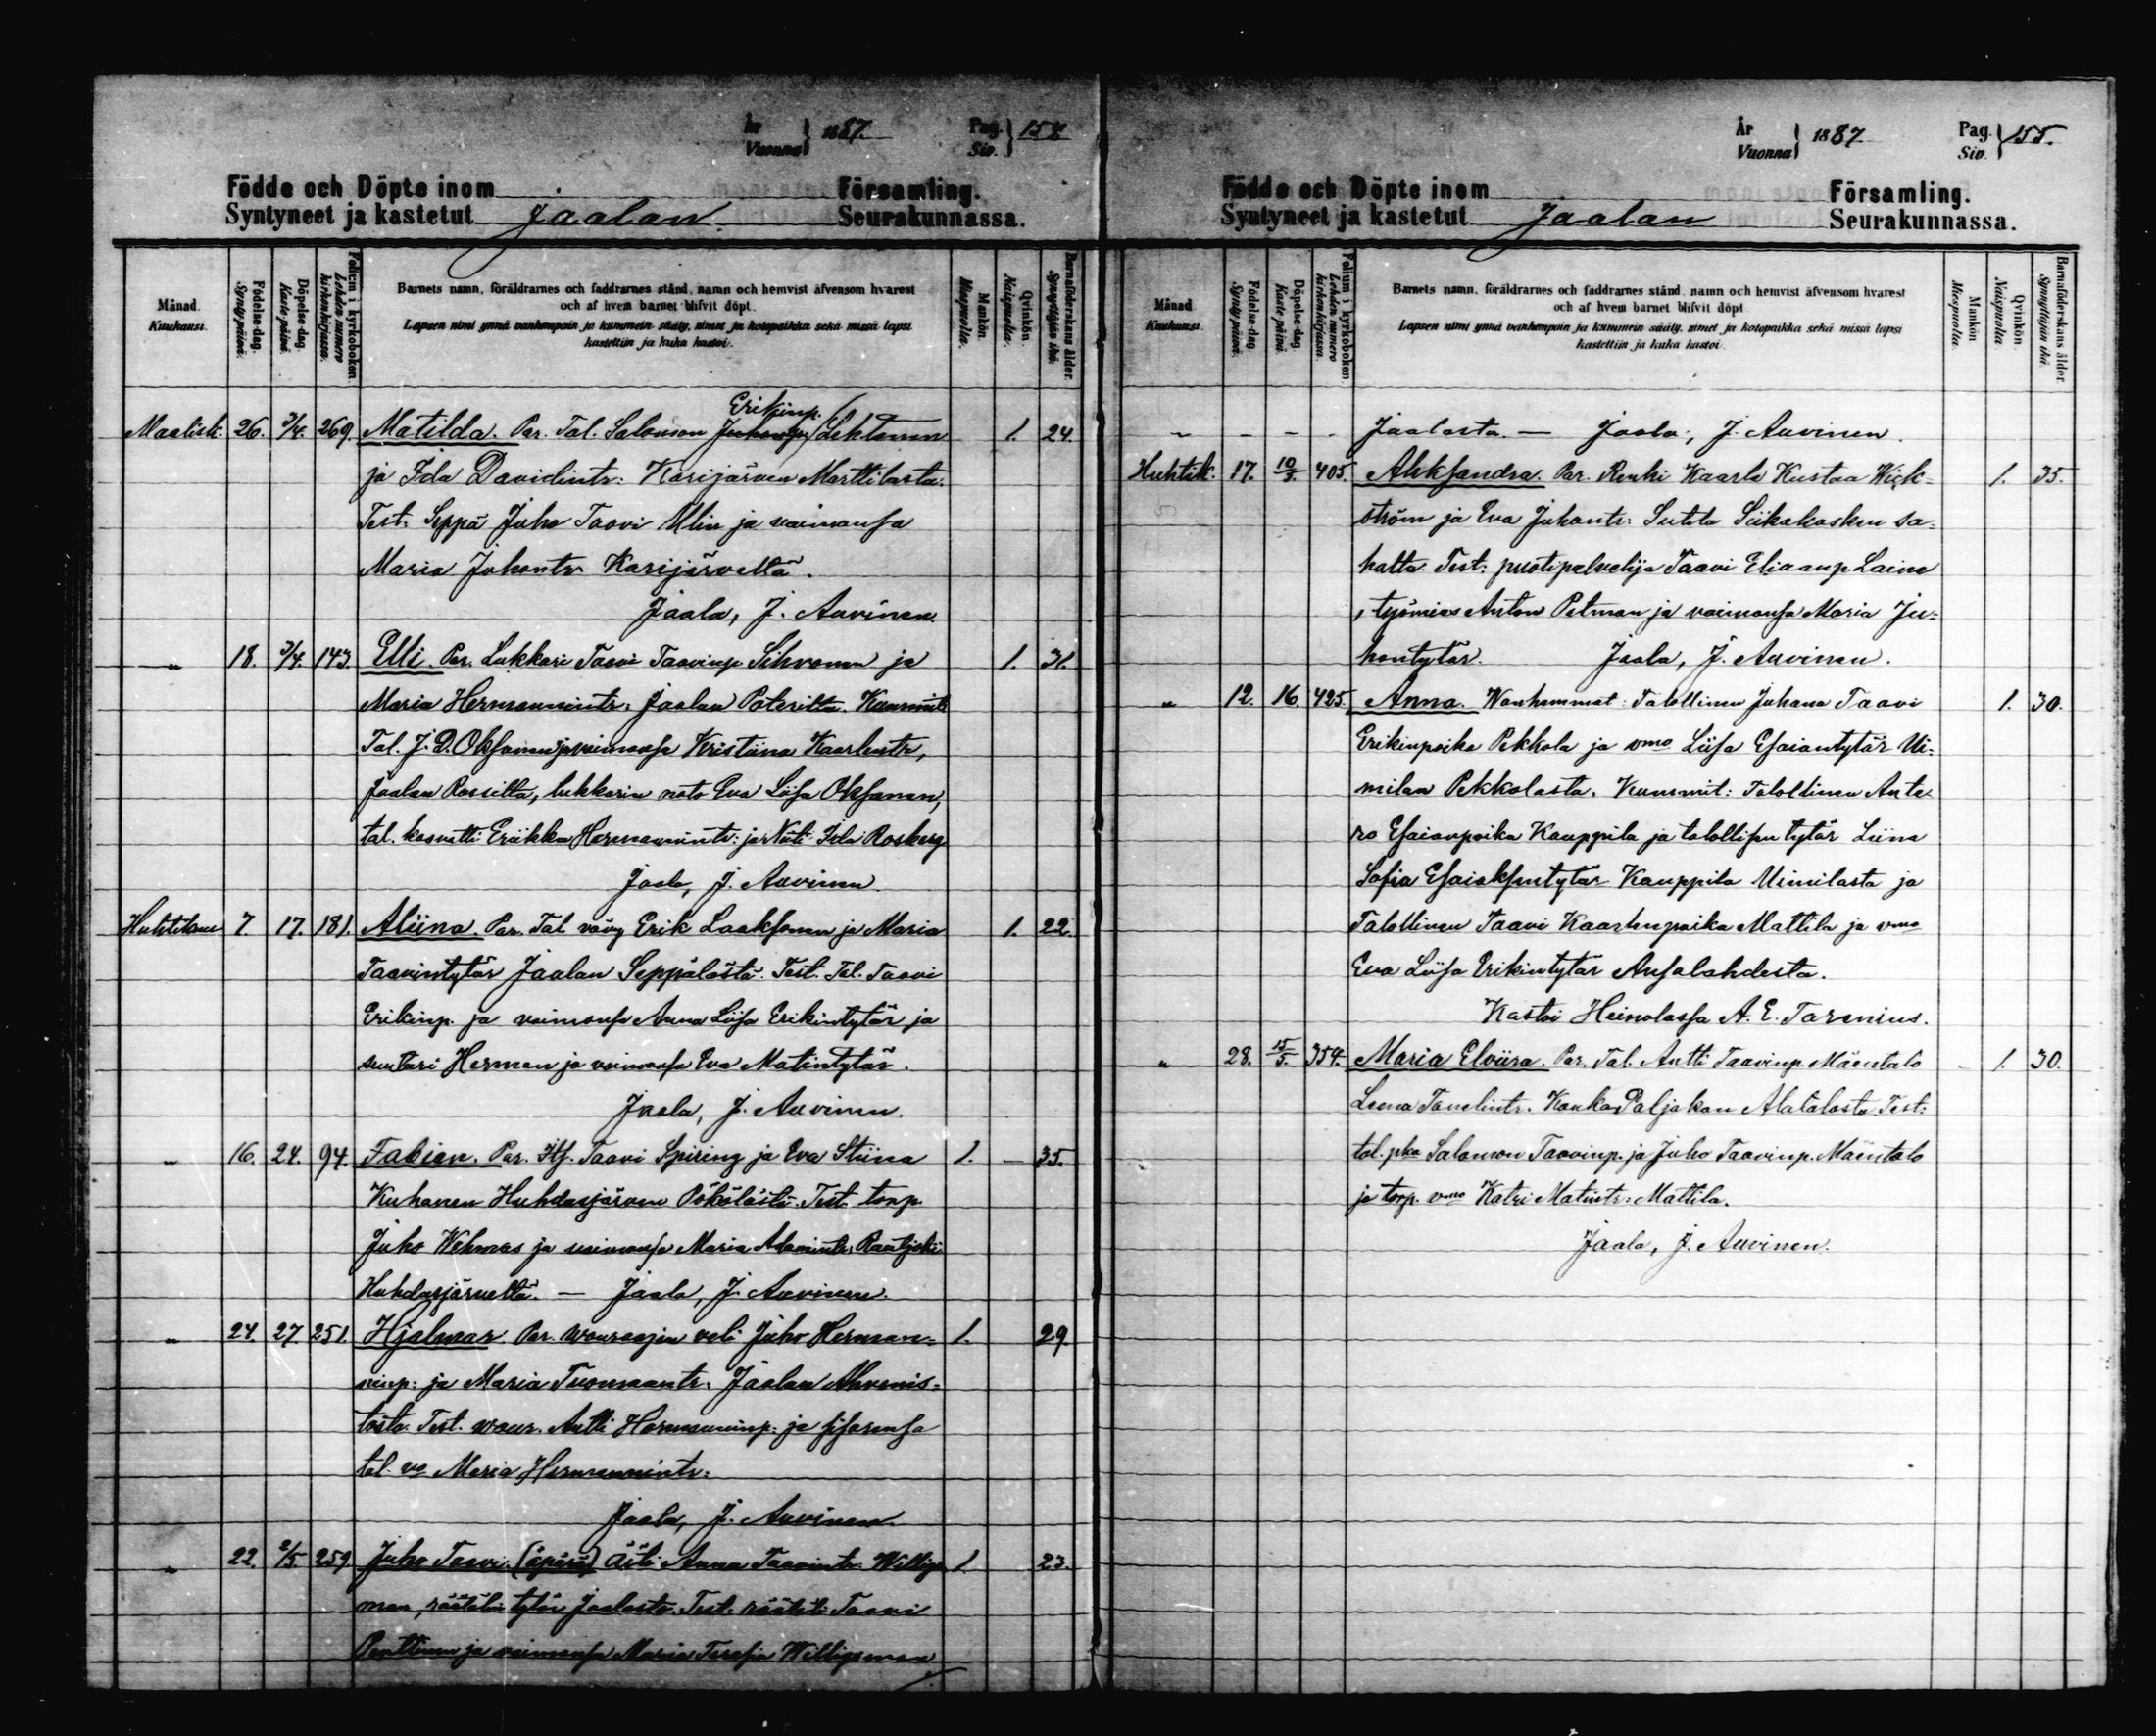 År
Vuonna } 1887. Pag.
Siv. } 154
Födde och Döpte inom Församling.
Syntyneet ja kastetut Jaalan. Seurakunnassa.
Månad.
Kuukausi.
Födelse-dag.
Synty-päivä.
Döpelse-dag.
Kaste-päivä.
Folium i kyrkoboken.
Lehden numero
kirkonkirjassa.
Barnets namn, föräldrarnes och faddrarnes stånd, namn och hemvist äfvensom hvarest
och af hvem barnet blifvit döpt.
Lapsen nimi ynnä vanhempain ja kummein sääty, nimet ja kotopaikka sekä missä lapsi
kastettiin ja kuka kastoi.
Mankön.
Miespuolia.
Qvinkön.
Naispuolia.
Barnaföderskans ålder.
Synnyttäjän ikä.
Erikinp.
Maalisk. 26. 3/4. 269. Matilda. Par. Tal. Salomon Juhonp. Lehtonen 1. 24.
ja Ida Davidintr: Karijärven Marttilasta.
Test: Seppä Juho Taavi Ulin ja vaimonsa
Maria Juhontr Karijärveltä.
Jaala, J. Auvinen.
" 18. 3/4. 143. Elli. Par. Lukkari Taavi Taavinp. Sihvonen ja 1. 31.
Maria Hermannintr: Jaalan Poterilta. Kummit:
Tal. J. D. Oksanen ja vaimonsa Kristiina Kaarlentr,
Jaalan Rossilta, lukkarin nato Eva Liisa Oksanen,
tal. kasvatti Erikka Hermannintr: ja Nti Ida Rosberg
Jaala, J. Auvinen
Huhtikuu 7. 17. 181. Aliina. Par. Tal. vävy Erik Laaksonen ja Maria 1. 22.
Taavintytär Jaalan Seppälästä. Test. Tal. Taavi
Erikinp. ja vaimonsa Anna Liisa Erikintytär ja
suutari Herman ja vaimonsa Eva Matintytär.
Jaala, J. Auvinen.
" 16. 24. 94. Fabian. Par. Itf. Taavi Spiring ja Eva Stiina 1. — 35.
Kuhanen Huhdasjärven Pökölästä. Test. torp.
Juho Wehmas ja vaimonsa Maria Adamintr: Rautjoki
Huhdasjärveltä. — Jaala, J. Auvinen.
" 24. 27. 251. Hjalmar. Par. Wouraajan veli Juho Herman= 1. 29.
ninp: ja Maria Tuomaantr: Jaalan Ahvenis=
tosta. Test. wour. Antti Hermanninp: ja sisarensa
tal. vo Maria Hermannintr:
Jaala, J. Auvinen.
" 22. 2/5. 259. Juho Taavi. (äpärä) Äiti Anna Taavintr. Willig= 1. 23.
man, räätälin tytär Jaalasta. Test. räätäli Taavi
Penttinen ja vaimonsa Maria Teresia Willigman
År
Vuonna } 1887 Pag.
Siv. } 155.
Födde och Döpte inom Församling.
Syntyneet ja kastetut Jaalan Seurakunnassa.
Månad.
Kuukausi.
Födelse-dag.
Synty-päivä.
Döpelse-dag.
Kaste-päivä.
Folium i kyrkoboken.
Lehden numero
kirkonkirjassa.
Barnets namn, föräldrarnes och faddrarnes stånd, namn och hemvist äfvensom hvarest
och af hvem barnet blifvit döpt.
Lapsen nimi ynnä vanhempain ja kummein sääty, nimet ja kotopaikka sekä missä lapsi
kastettiin ja kuka kastoi.
Mankön.
Miespuolia.
Qvinkön.
Naispuolia.
Barnaföderskans ålder.
Synnyttäjän ikä.
" - - - Jaalasta. — Jaala, J. Auvinen.
Huhtik. 17. 10/5. 405. Aleksandra. Par. Renki Kaarlo Kustaa Wick= 1. 35.
ström ja Eva Juhontr: Sutela Siikakosken sa=
halta. Test: puotipalvelija Taavi Eliaanp. Laine
, työmies Anton Petman ja vaimonsa Maria Ju=
hontytär. Jaala, J. Auvinen.
" 12. 16. 425. Anna. Wanhemmat: Talollinen Juhana Taavi 1. 30.
Erikinpoika Pekkola ja vmo Liisa Esaiantytär Ui=
milan Pekkolasta. Kummit: Talollinen Ante
ro Esaianpoika Kauppila ja talollisen tytär Liina
Sofia Esaiaksentytär Kauppila Uimilasta ja
Talollinen Taavi Kaarlenpoika Mattila ja vmo
Eva Liisa Erikintytär Ansalahdesta.
Kastoi Heinolassa A. E. Tarenius.
" 28. 15/5. 354. Maria Elviira. Par. Tal. Antti Taavinp. Mäentalo 1. 30.
Leena Tanelintr. Kouka Paljakan Alatalosta Test:
tal. pka Salomon Taavinp. ja Juho Taavinp. Mäentalo
ja torp. vmo Katri Matintr: Mattila.
Jaala, J. Auvinen.